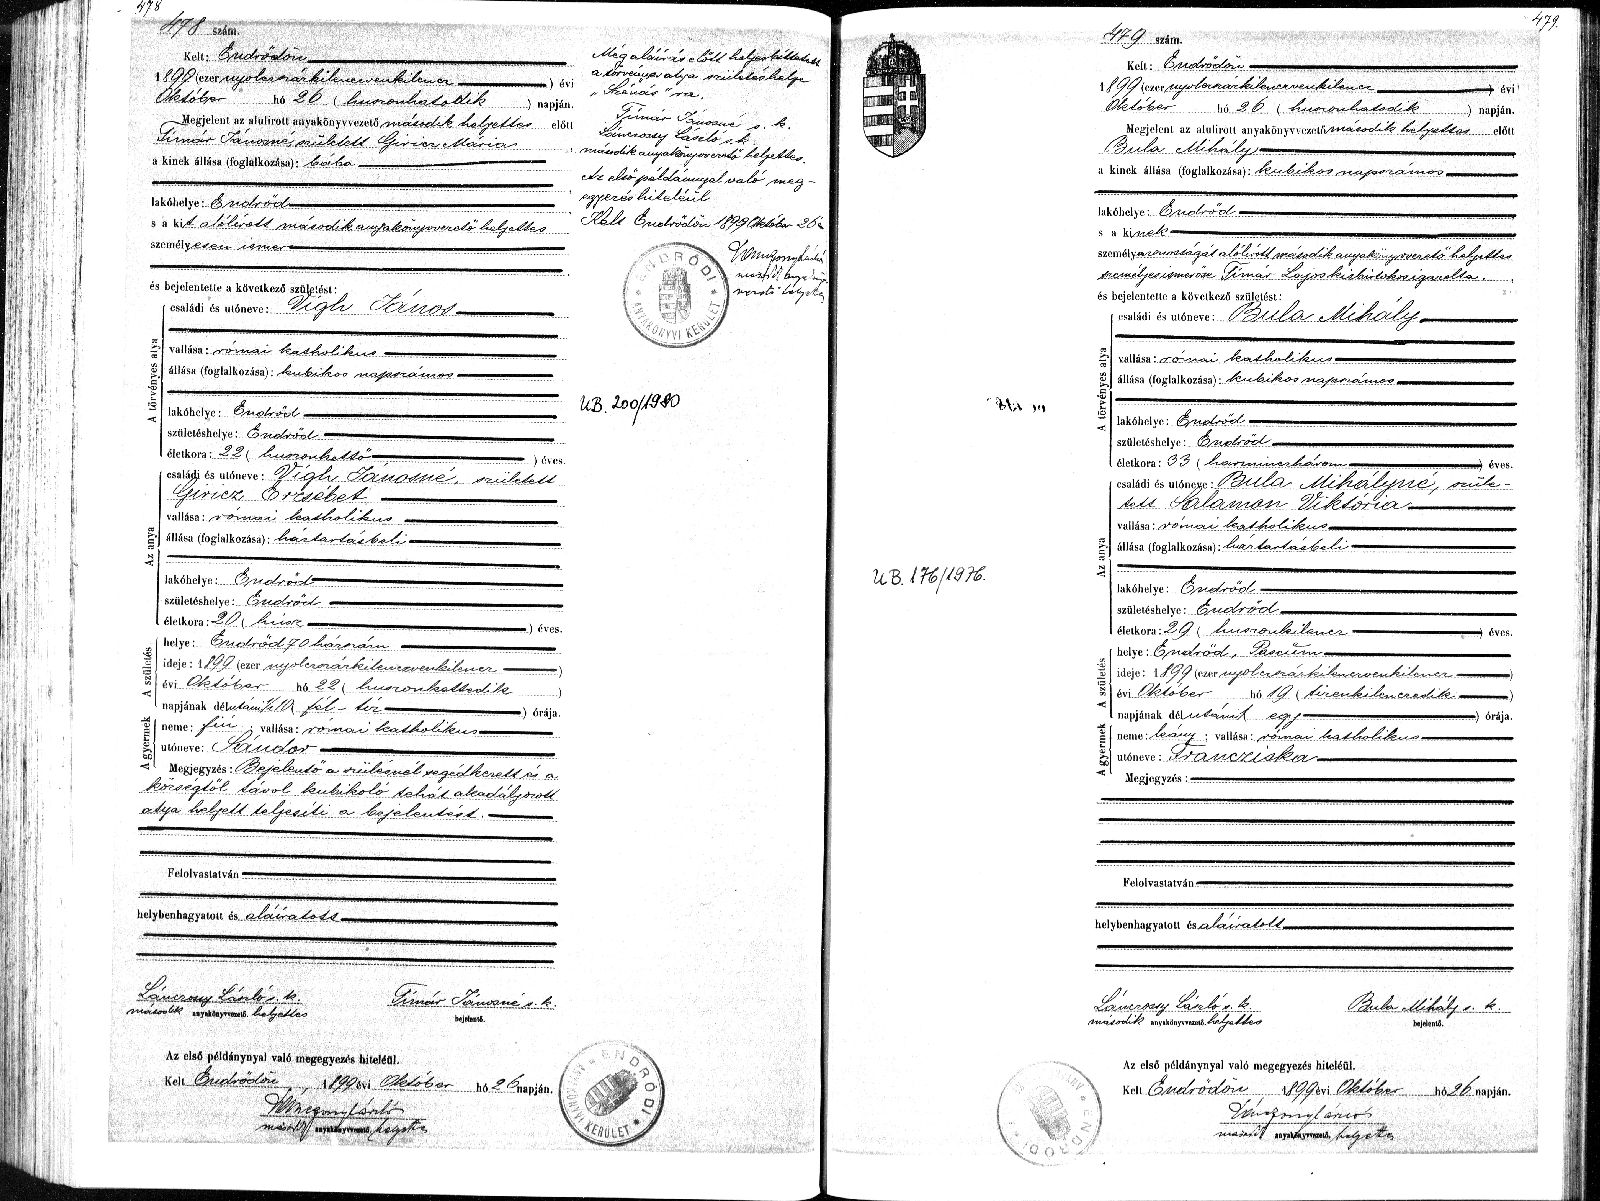 478
478 szám.
Kelt: Endrődön
1899 (ezer nyolczszázkilenczvenkilencz ) évi
Október hó 26 (huszonhatodik ) napján.
Megjelent az alulirott anyakönyvvezető második helyettes előtt
Timár Jánosné, született Giricz Mária
a kinek állása (foglalkozása): bába
lakóhelye: Endrőd
s a kit alólirott második anyakönyvvezető helyettes
személyesen ismer
és bejelentette a következő születést:
A törvényes atya
családi és utóneve: Vigh János
vallása: római katholikus
állása (foglalkozása): kubikos napszámos
lakóhelye: Endrőd
születéshelye: Endrőd
életkora: 22 (huszonkettő ) éves.
Az anya
családi és utóneve: Vigh Jánosné, született
Giricz Erzsébet
vallása: római katholikus
állása (foglalkozása): háztartásbeli
lakóhelye: Endrőd
születéshelye: Endrőd
életkora: 20 (húsz ) éves.
A születés
helye: Endrőd 70 házszám
ideje: 1899 (ezer nyolczszázkilenczvenkilencz )
évi Október hó 22 (huszonkettedik )
napjának délután ½10 (fél-tíz ) órája.
A gyermek
neme: fiú; vallása: római katholikus
utóneve: Sándor
Megjegyzés: Bejelentő a szülésnél segédkezett és a
községtől távol kubikoló tehát akadályozott
atya helyett teljesíti a bejelentést.
Felolvastatván
helybenhagyatott és aláiratott
Lánczosy László s. k. Timár Jánosné s. k.
második anyakönyvvezető helyettes bejelentő.
Az első példánynyal való megegyezés hiteléül.
Kelt Endrődön, 1899 évi Október hó 26 napján.
anyakönyvvezető, helyettes
ENDRŐDI ANYAKÖNYVI KERÜLET
Még aláirás előtt helyesbittetett
a törvényes atya születéshelye
„Szénás"ra.
Timár Jánosné s. k.
Lánczosy László s. k.
második anyakönyvvezető helyettes.
Az első példánnyal való meg-
egyezés hiteléül
Kelt Endrődön 1899 Október 26án
ENDRŐDI ANYAKÖNYVI KERÜLET
UB. 200/1980
UB. 176/1976.
479
479 szám.
Kelt: Endrődön
1899 (ezer nyolczszázkilenczvenkilencz ) évi
Október hó 26 (huszonhatodik ) napján.
Megjelent az alulirott anyakönyvvezető második helyettes előtt
Bula Mihály
a kinek állása (foglalkozása): kubikos napszámos
lakóhelye: Endrőd
s a kinek
személyazonosságát alólirott második anyakönyvvezető helyettes
személyes ismerőse Timár Lajos kisbirtokos igazolta.
és bejelentette a következő születést:
A törvényes atya
családi és utóneve: Bula Mihály
vallása: római katholikus
állása (foglalkozása): kubikos napszámos
lakóhelye: Endrőd
születéshelye: Endrőd
életkora: 33 (harminczhárom ) éves.
Az anya
családi és utóneve: Bula Mihályné, szüle-
tett Salamon Viktória
vallása: római katholikus
állása (foglalkozása): háztartásbeli
lakóhelye: Endrőd
születéshelye: Endrőd
életkora: 29 (huszonkilencz ) éves.
A születés
helye: Endrőd, Pascum
ideje: 1899 (ezer nyolczszázkilenczvenkilencz )
évi Október hó 19 (tizenkilenczedik )
napjának délután 1 (egy ) órája.
A gyermek
neme: leány; vallása: római katholikus
utóneve: Francziska
Megjegyzés:
Felolvastatván
helybenhagyatott és aláiratott
Lánczosy László s. k. Bula Mihály s. k.
második anyakönyvvezető helyettes bejelentő.
Az első példánynyal való megegyezés hiteléül.
Kelt Endrődön 1899 évi Október hó 26 napján.
anyakönyvvezető, helyettes